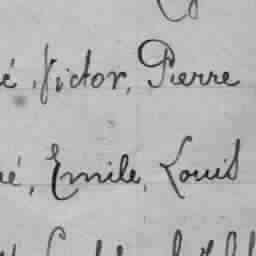 é, Victor, Pierre
é, Emile, Louis